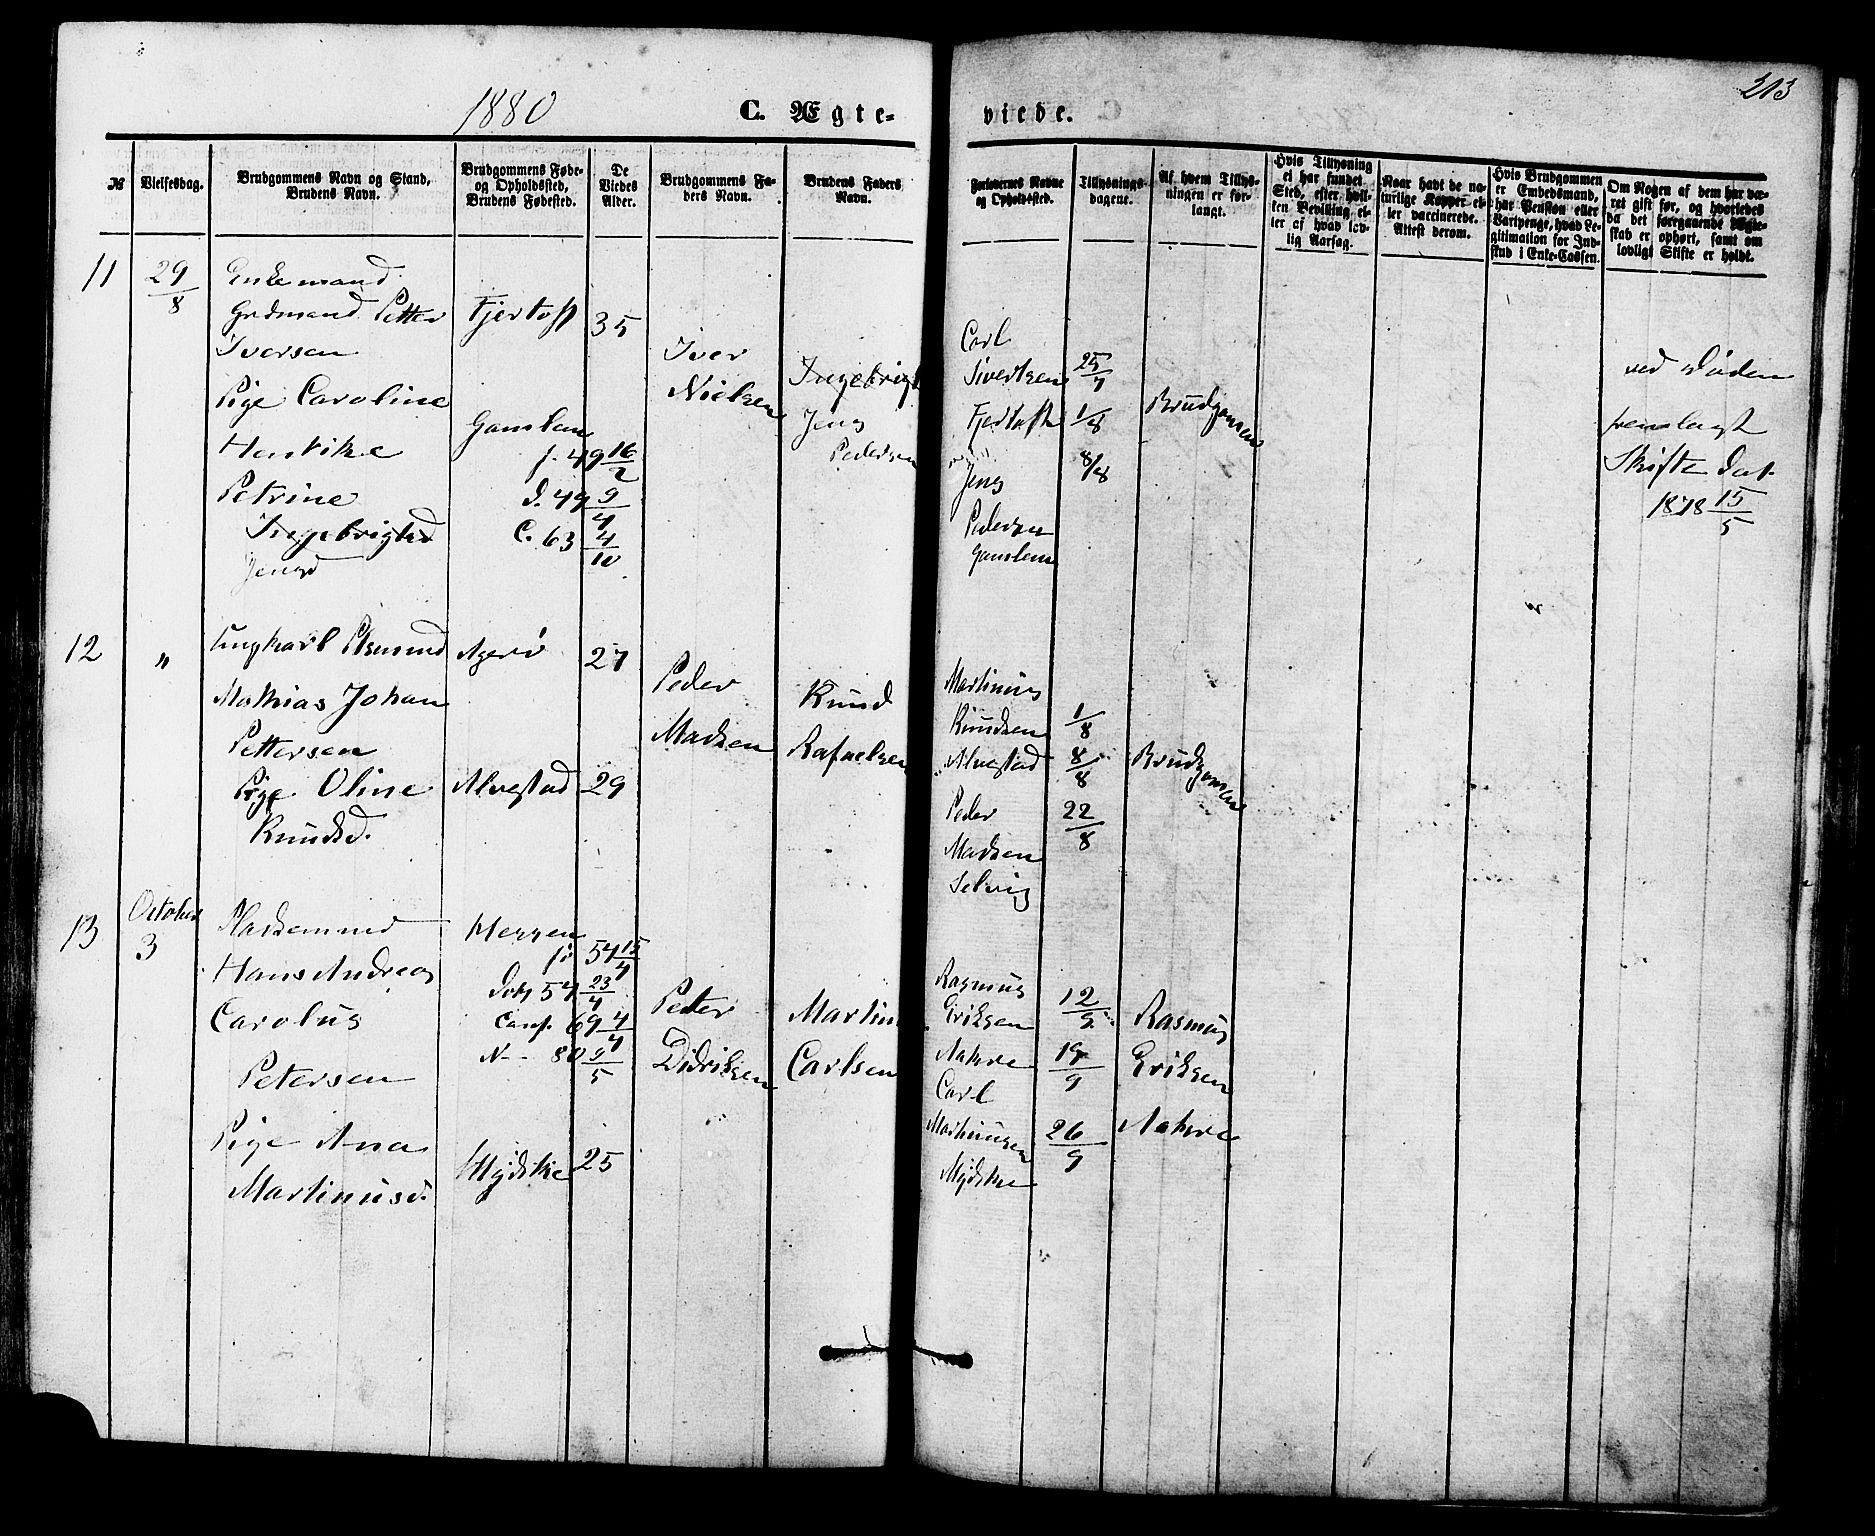 1880
C. Ægte-
viede.
213
№
Vielsesdag.
Brudgommens Navn og Stand,
Brudens Navn.
Brudgommens Føde-
og Opholdssted,
Brudens Fødested.
De
Viedes
Alder.
Brudgommens Fa-
ders Navn.
Brudens Faders
Navn.
Forlovernes Navne
og Opholdssted.
Tillysnings-
dagene.
Af hvem Tillys-
ningen er for-
langt.
Hvis Tillysning
ei har fundet
Sted, efter hvil-
ken Bevilling el-
ler af hvad lov-
lig Aarsag.
Naar havt de na-
turlige Kopper el-
ler vaccinerede.
Attest derom.
Hvis Brudgommen
er Embedsmand,
har Pension eller
Vartpenge, hvad Le-
gitimation for Ind-
skud i Enke-Cassen.
Om Nogen af dem har væ-
ret gift før, og hvorledes
da det foregaaende Ægte-
skab er ophørt, samt om
lovligt Skifte er holdt.
11
29/8
Enkemand
Grdmand Petter
Iversen
Pige Caroline
Henrikke
Petrine
Ingebrigtsd
Jensd
Fjertoft
Gamlem
f. 49 16/2
d. 49 9/4
C. 63 4/10
35
Iver
Nielsen
Ingebrigt
Jens
Pedersen
Carl
Sivertsen
Fjertoft
Jens
Pedersen
Gamlem
25/7
1/8
8/8
Brudgomen
ved Døden
fremlagt
Skifte dat.
1878 15/5
12
"
Ungkarl
Mathias Johan
Pettersen
Pige Oline
Knudsd.
Agerö
Alvestad
27
29
Peder
Madsen
Knud
Rafaelsen
Martinus
Knudsen
Alvestad
Peder
Madsen
Selvig
1/8
8/8
22/8
Brudgomen
13
October
3
Hans Andreas
Carolus
Petersen
Pige Ana
Martinusd.
f. 54 15/4
Døb 54 23/4
Conf. 69 4/4
N-- 80 9/5
Mydske
25
Peter
Didriksen
Martin
Carlsen
Rasmus
Eriksen
Aakre
Carl
Martinusen
Mydske
12/9
19/9
26/9
Rasmus
Eriksen
Aakre